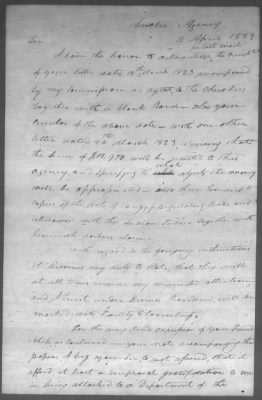 Cherokee Agency
11 April 1823
Sir
I have the honor to acknowledge the receipt
of your letter dated 18th March 1823 accompanied
by my Commission as agent to the Cherokees
together with a blank Bond – also your
Circular of the above date – with one other
letter dated 20th March 1823, advising that
the sum of will be remitted to this
agency and specifying to what objects the money
will be appropriated – also three
copies of the acts of Congress regulating trade and
intercourse with the Indian tribes together with
blank claims.
With regard to the foregoing instructions
it becomes my duty to state, that they will
at all times receive my unremitted attention
and I trust under Divine Providence, will be
marked with
For the very kind expression of your friend
ship as contained in your note accompanying the
papers. I beg you Sir to not afraid, that it
afford at least a reciprocal gratification to me
in being attached to a Department of the